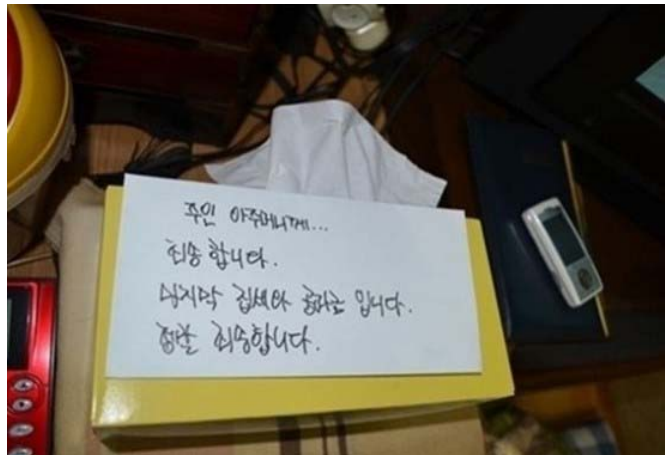 주인 아주머니께...
죄송합니다.
마지막 집세와 공과금 입니다.
정말 죄송합니다.